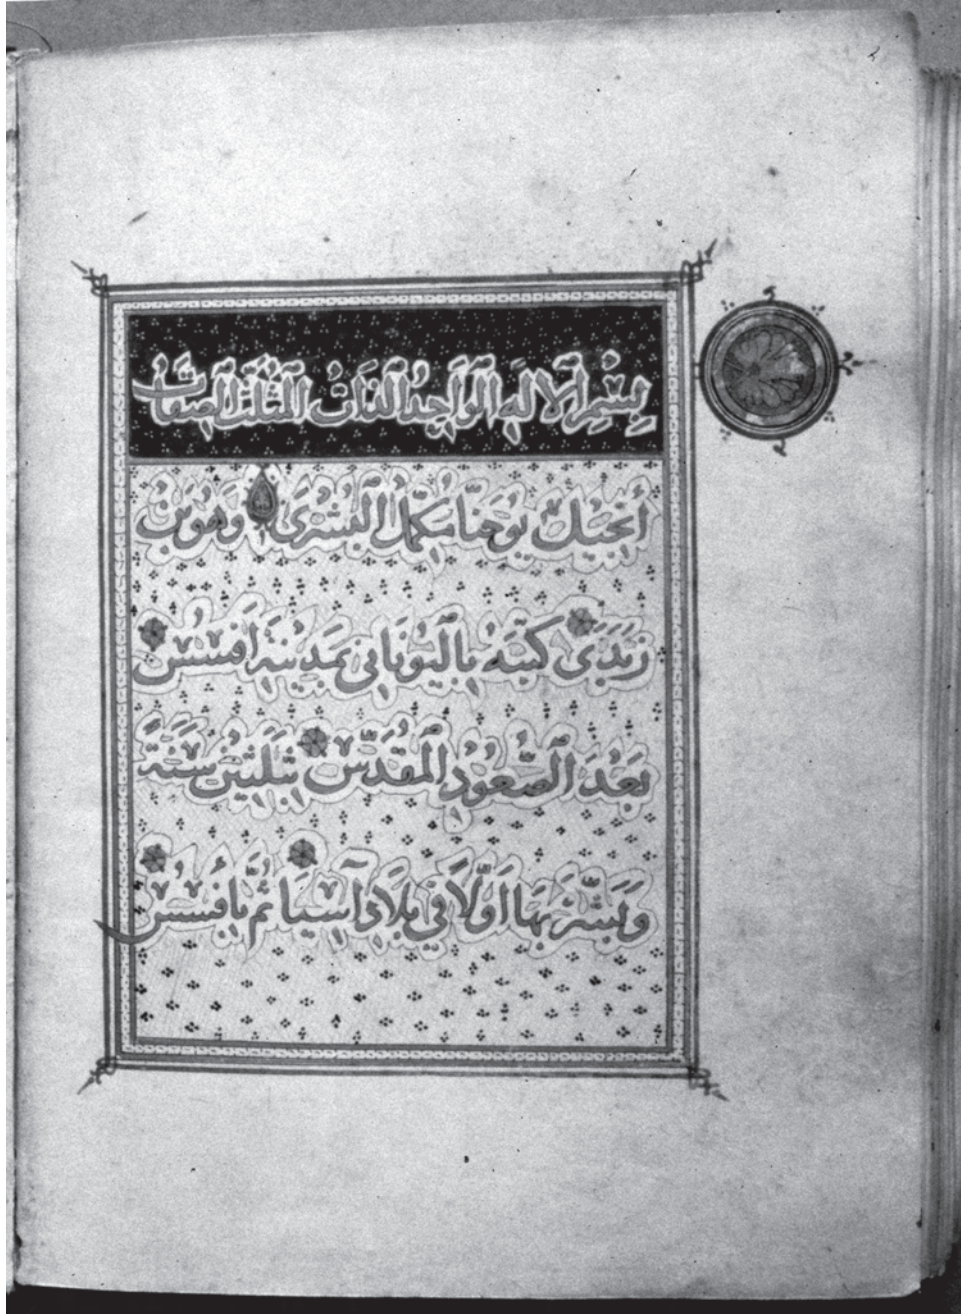 بِسْمِ الالَهِ الوَاحِدُ الذَاتُ المثَلَّث الصِفَات
أنجيل يوحنا مكمّل البُشرَى وَهوَ بن
زَبَدَى كتبَه باليُونَانى بمَدينَه افسُس
بَعْدَ الصُّعُودِ المُقدَّس بثلثينَ سَنَةً
وَبَشَّرَ بهَا اَوَّلاً في بلادِ آسيَا ثمَّ بأفسُسَ